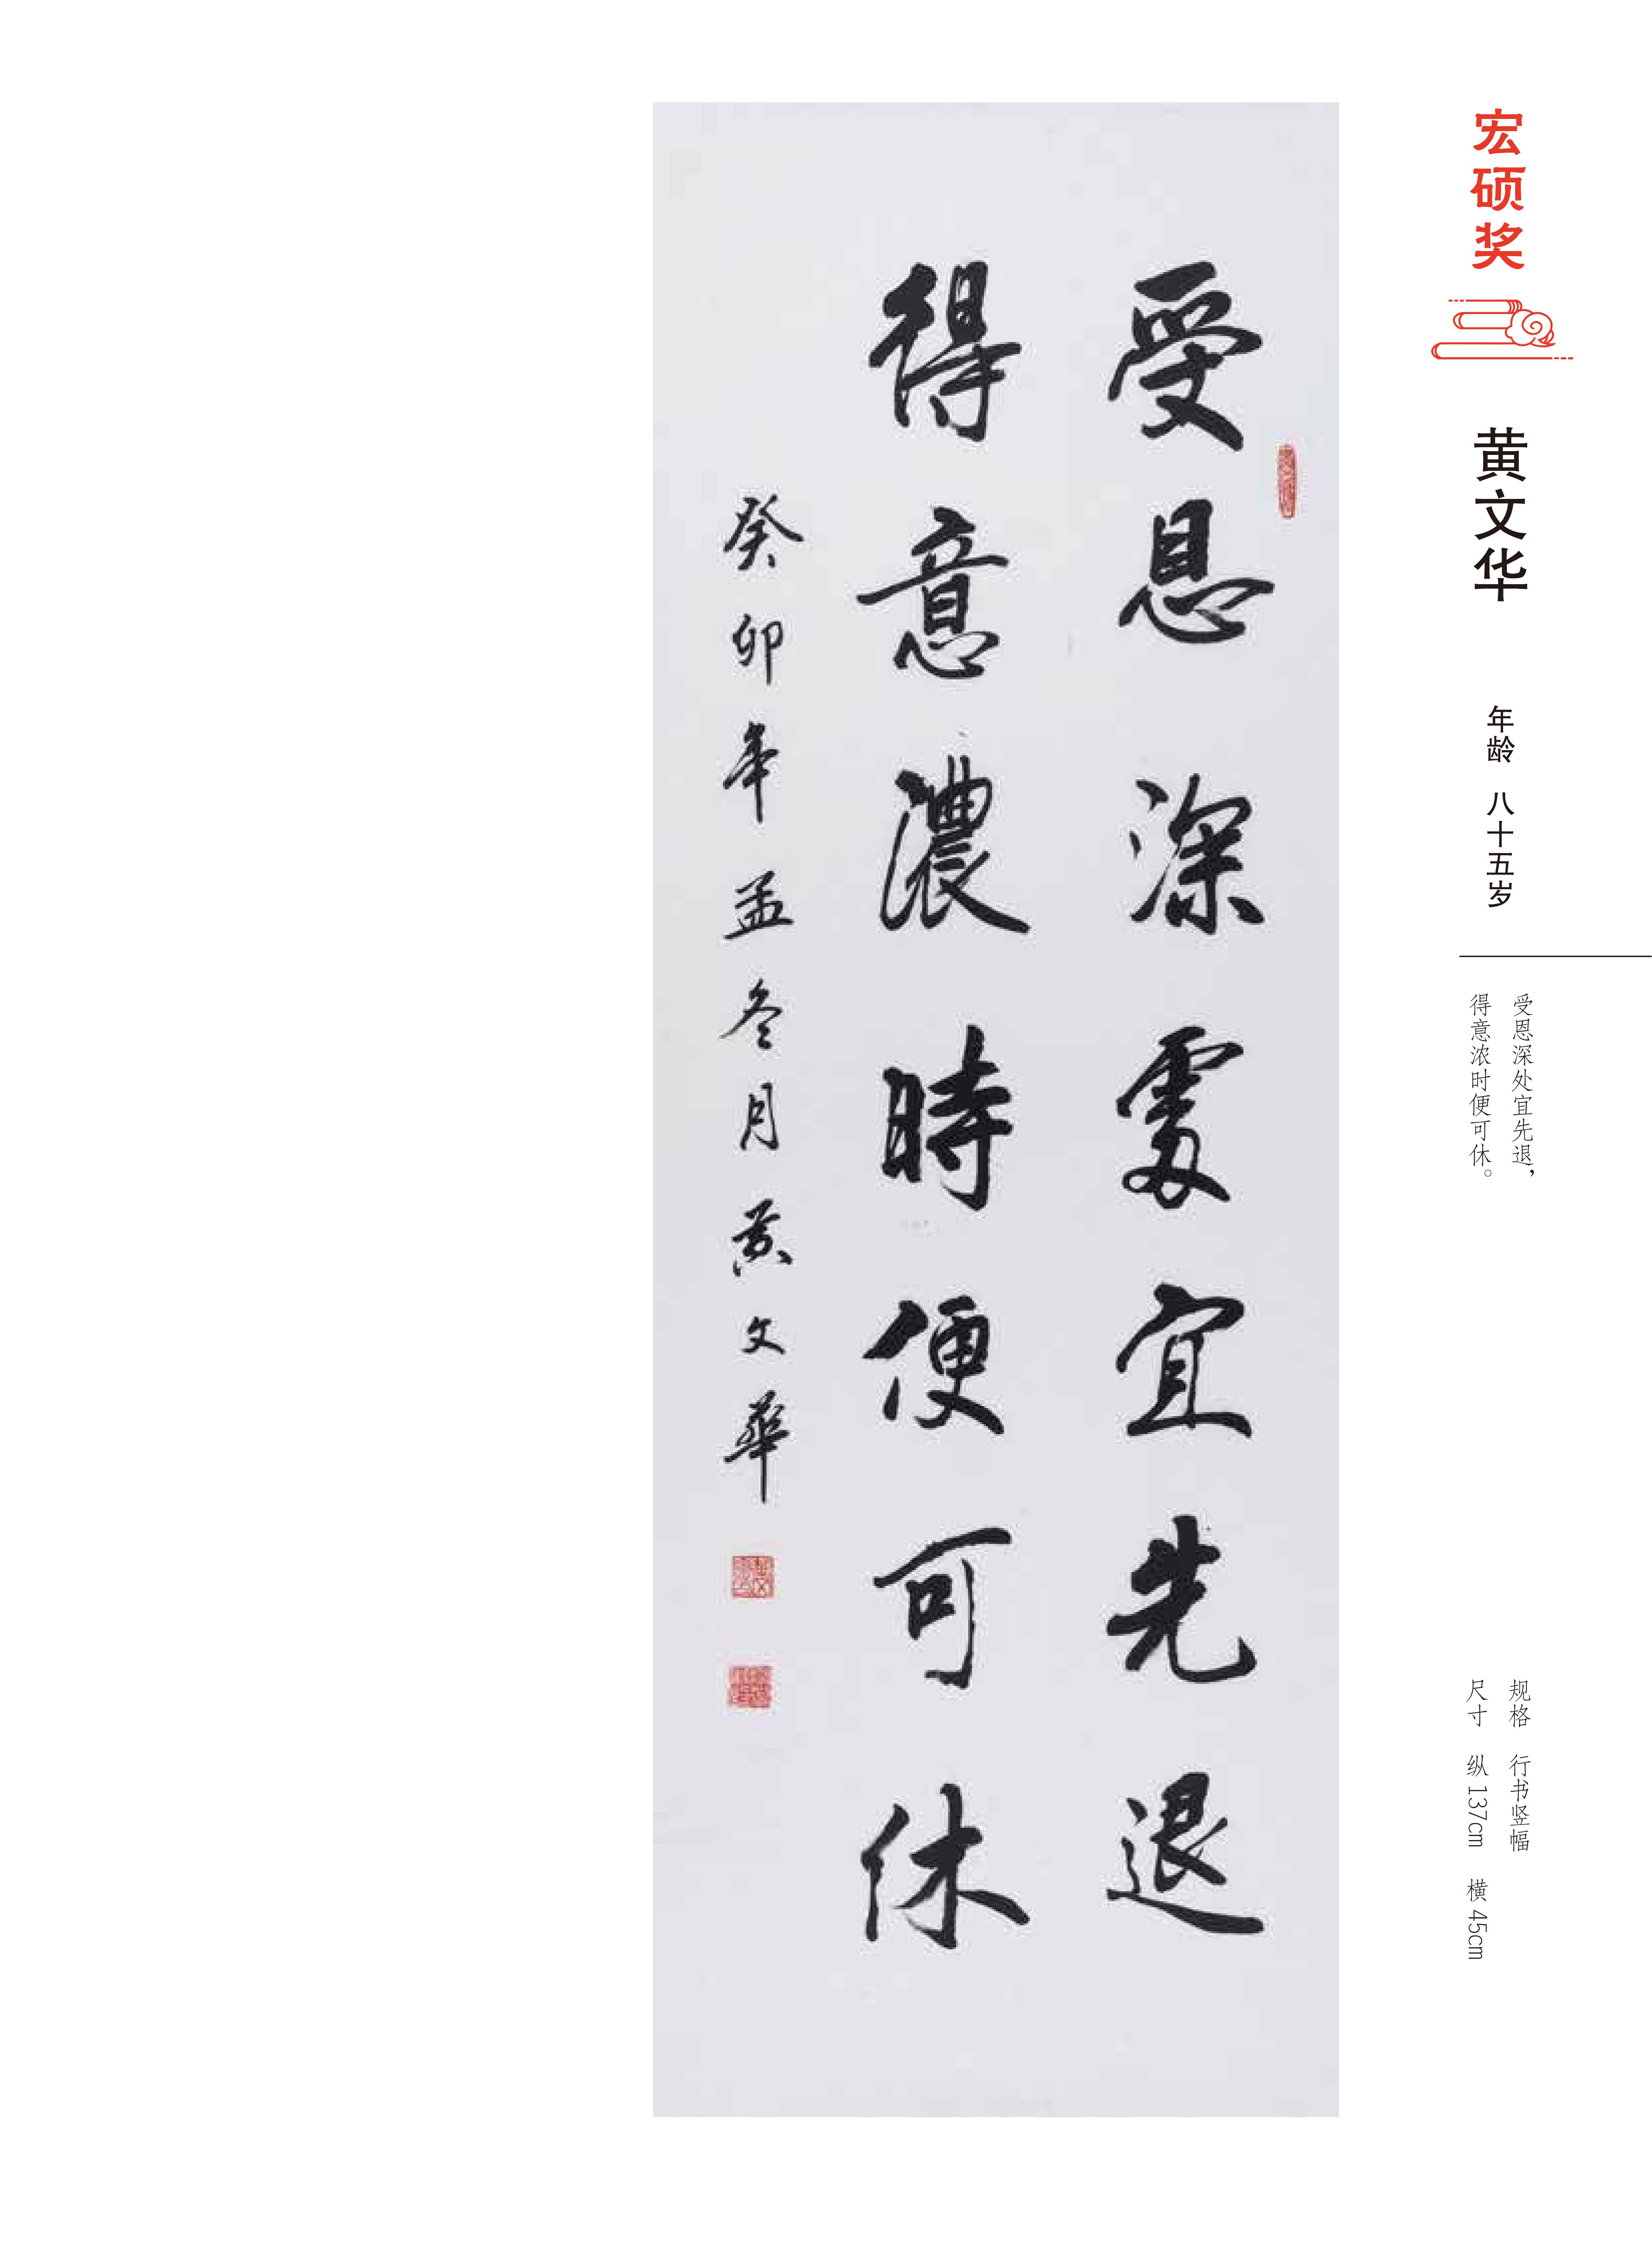 宏硕奖
黄文华
年龄 八十五岁
受恩深处宜先退，
得意浓时便可休。
规格 行书竖幅
尺寸 纵137cm 横45cm
受恩深處宜先退
得意濃時便可休
癸卯年孟冬月黄文華